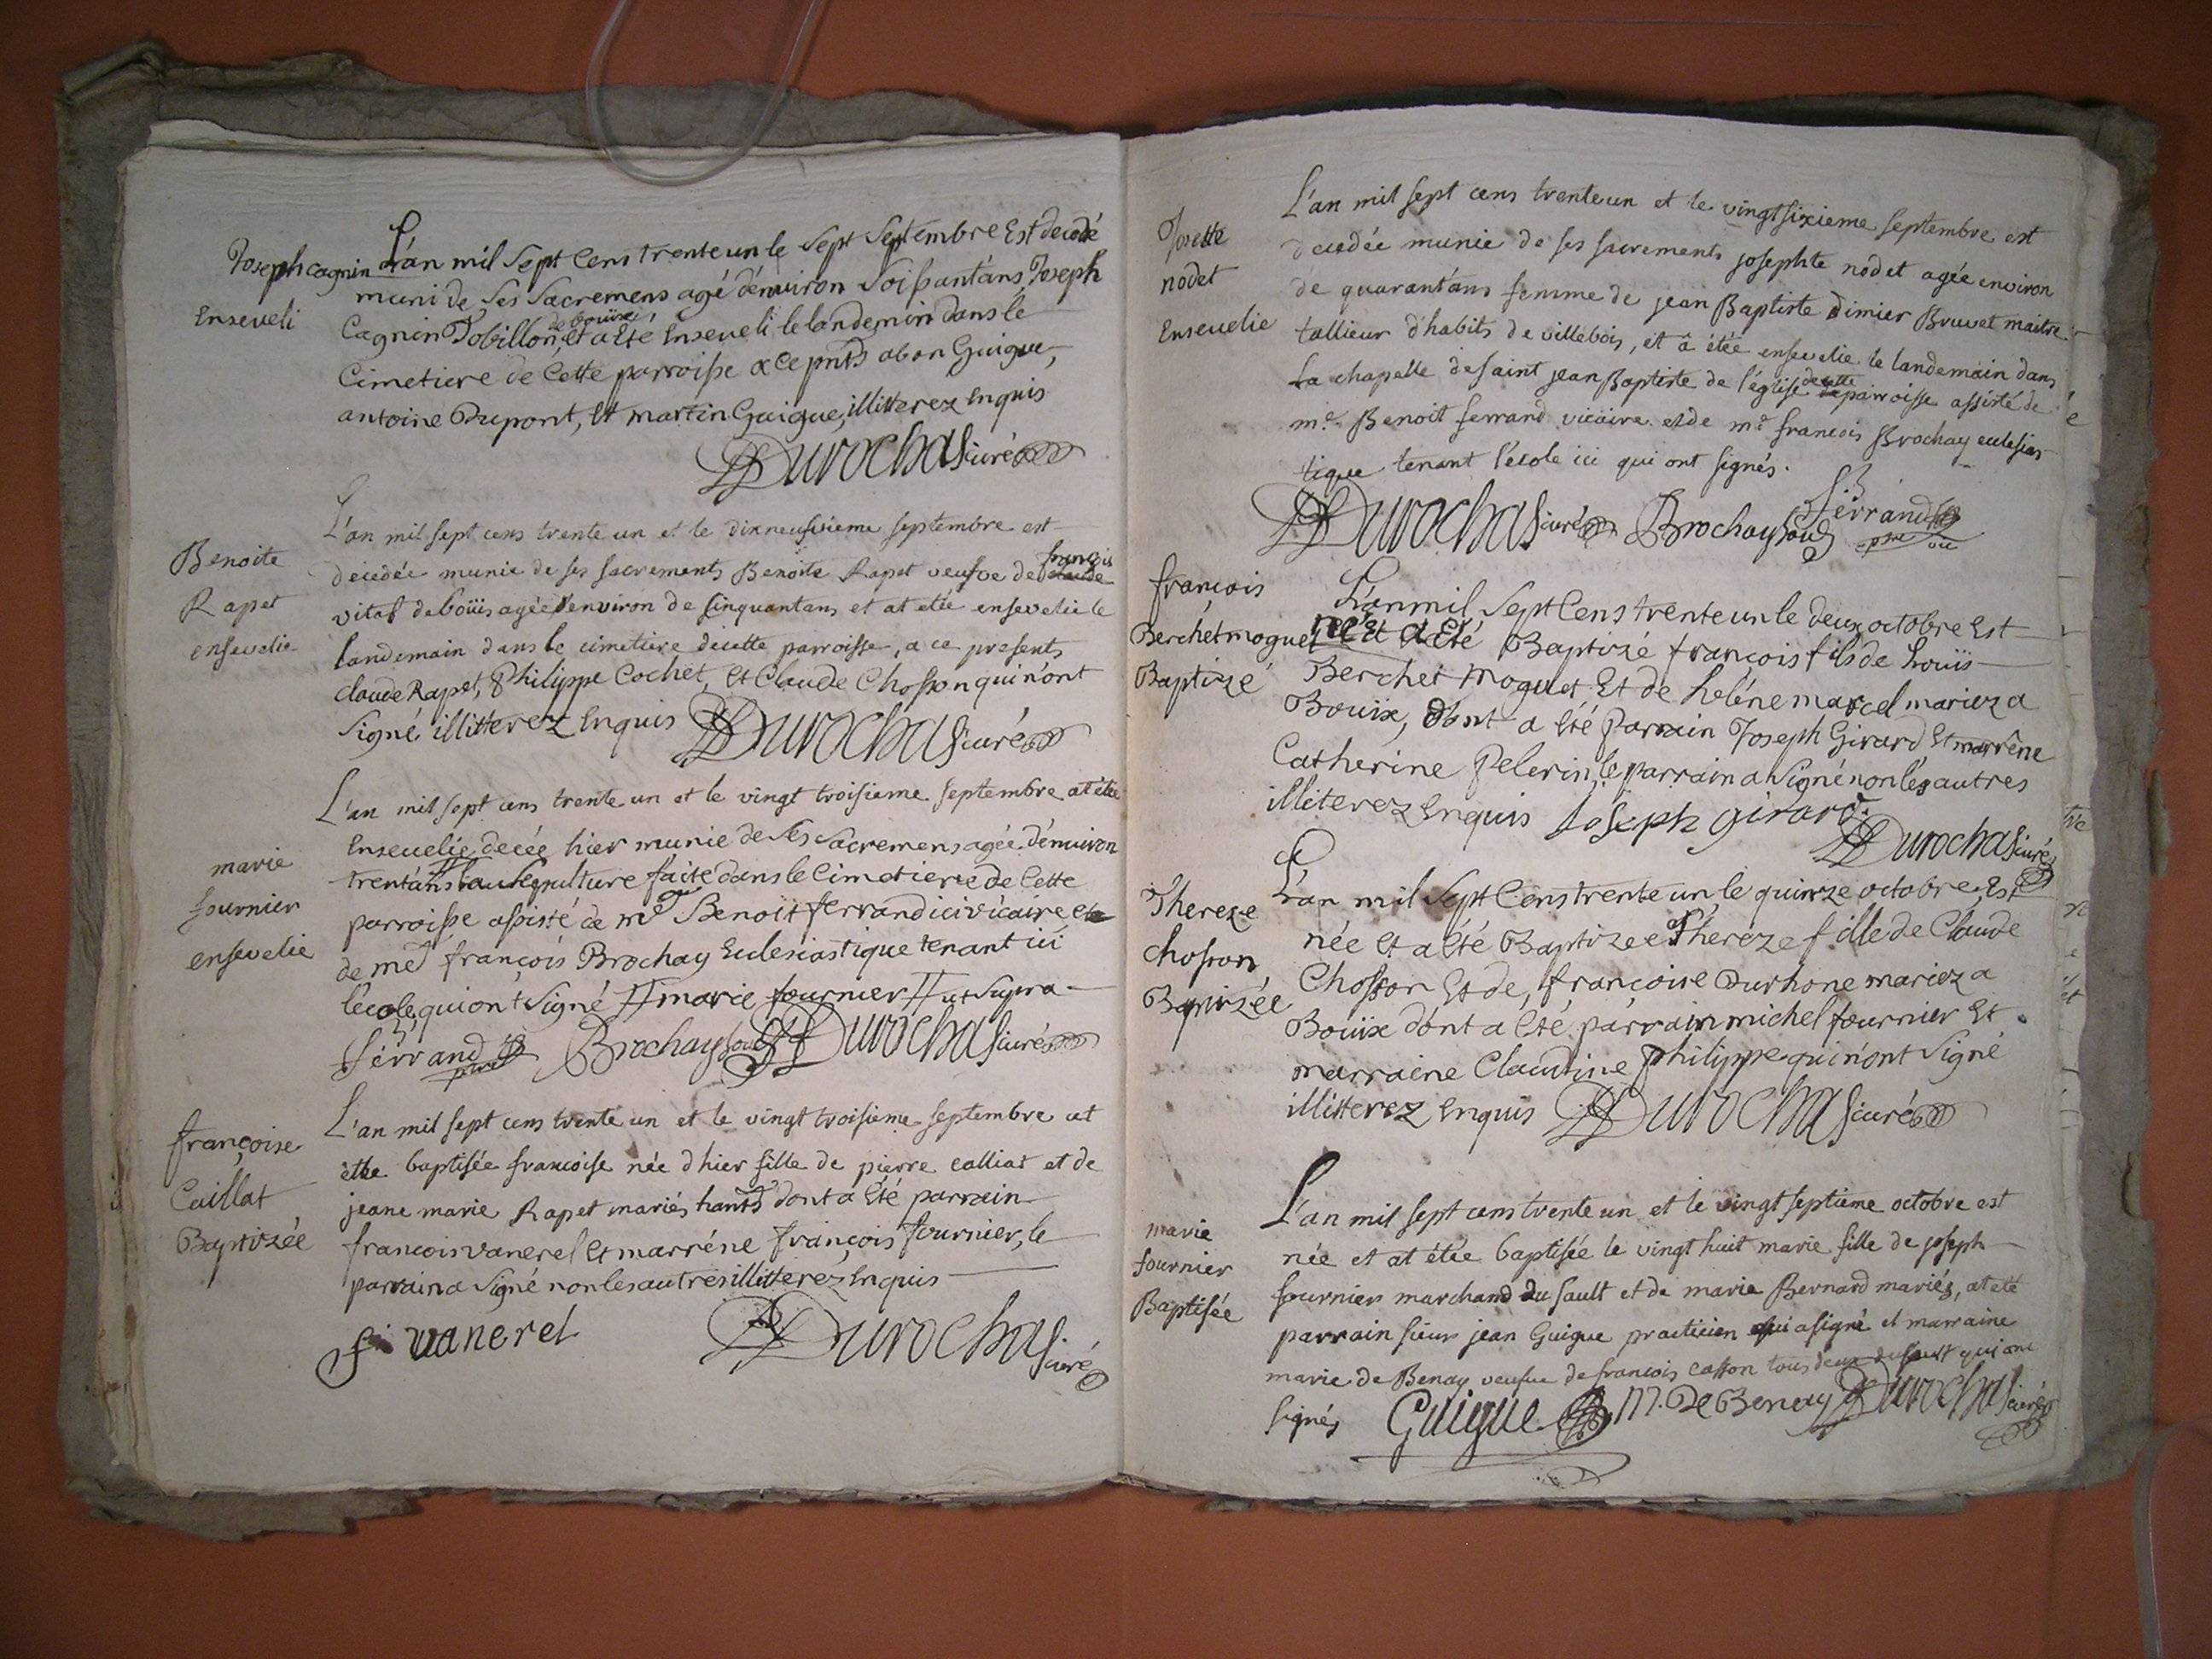 Joseph cagnin
Enseveli
L'an mil Sept Cens trente un le Sept Septembre Est decedé
muni de Ses Sacremens agé d'environ Soissant'ans Joseph
Cagnin Tobillon, de boüixe, Et a Eté Enseveli le landemin dans le
Cimetiere de Cette parroisse a Ce pnts abon Guigue,
antoine Dupont, Et martin Guigue, illitterez Enquis
Durochas curé
Benoite
Rapet
ensevelie
L'an mil sept cens trente un et le dixneufvieme septembre est
decedée munie de ses sacrements Benoite Rapet veufve de françois
vital de boüis agée d'environ de sinquantans et at etée ensevelie le
landemain dans le cimetiere de cette parroisse, a ce presents
claude Rapet, Philippe Cochet, Et Claude Chosson qui n'ont
Signé illitterez Enquis Durochas curé
marie
fournier
ensevelie
L'an mil sept cens trente un et le vingt troisieme septembre at étée
Ensevelie decée hier munie de Ses Sacremens agée d'environ
trent'ans la Sepulture faite dans le Cimetiere de Cette
parroisse assisté de mre Benoit ferrand ici vicaire, et
de me françois Brochay Eclesiastique tenant ici
l'école, qui ont Signé # marie fournier # ut Supra
ferrand Brochay Durochas curé
françoise
Caillat
Baptizée
L'an mil sept cens trente un et le vingt troisieme septembre at
etée baptisée francoise née d'hier fille de pierre calliat et de
jeane marie Rapet mariés hants dont a Eté parrain
francois vanerel Et marréne françois fournier, le
parrain a Signé non les autres illitterez Enquis
f. vanerel Durochas curé
Josette
nodet
Ensevelie
L'an mil sept cens trente un et le vingt sixieme septembre est
decedée munie de ses sacrements josephte nodet agée environ
de quarant'ans femme de jean Baptiste Dimier Bruvet maitre
tallieur d'habits de villebois, et â étée ensevelie le landemain dans
la chapelle de saint jean Baptiste de l'église de cette parroisse assisté de
mre Benoit ferrand vicaire et de mr francois Brochay eclesias
tique tenant l'école ici qui ont signés.
Durochas curé Brochay ferrand
françois
Berchet moguet
Baptizé
L'an mil Sept Cens trente un le deux octobre Est
né Et a Eté Baptizé françois fils de Loüis
Berchet moguet Et de heléne marcel mariez a
Bouix, dont a Eté parrain Joseph Girard Et marréne
Catherine Pelerin, le parrain a Signé non les autres
illiterez Enquis Joseph girard.
Durochas curé
Thereze
chosson
Baptizée
L'an mil Sept Cens trente un, le quinze octobre, Est
née Et a Eté Baptizee Theréze fille de Claude
Chosson Et de, françoise Durhone mariez a
Boüix dont a Eté parrain michel fournier Et
marraine Claudine philippe qui n'ont Signé
illitterez Enquis Durochas curé
marie
fournier
Baptisée
L'an mil sept cens trente un et le vingt septieme octobre est
née et at étée baptisée le vingt huit marie fille de joseph
fournier marchand du sault et de marie Bernard mariés, at eté
parrain sieur jean Guigue practicien qui a signé et marraine
marie de Benay veufve de francois casson tous deux du sault qui ont
signés Guigue M. De Benay Durochas curé